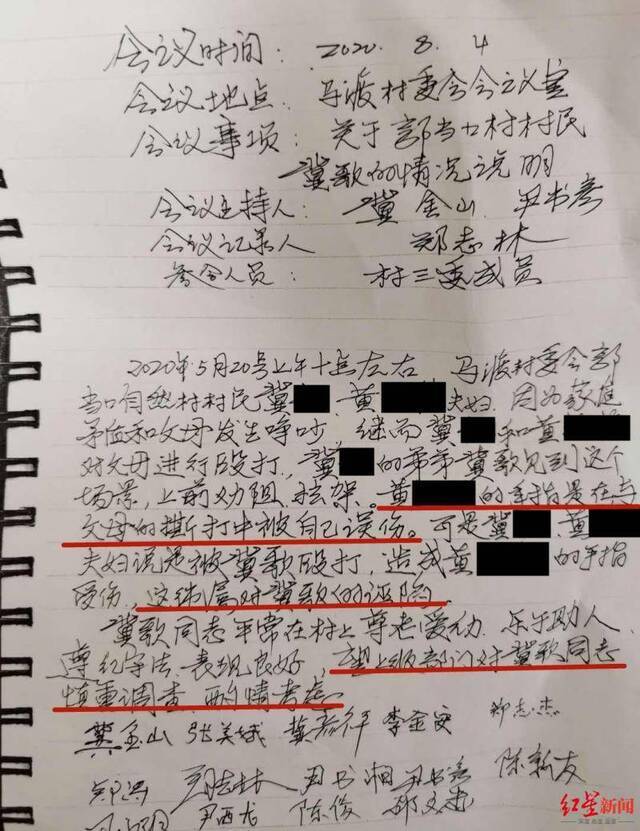 会议时间: 2020. 8. 4
会议地点: 马渡村委会会议室
会议事项: 关于郭当口村村民
冀歌的情况说明
会议主持人: 冀金山、尹书彦
会议记录人 郑志林
参会人员: 村三委成员
2020年5月20号上午十点左右 马渡村委会郭
当口自然村村民冀 黄 夫妇 因为家庭
矛盾和父母发生争吵, 继而冀 和黄
对父母进行殴打, 冀 的弟弟冀歌见到这个
场景, 上前劝阻、拉架。黄 的手指是在与
父母的撕打中被自己误伤。可是冀 、黄
夫妇说是被冀歌殴打, 造成黄 的手指
受伤, 这纯属对冀歌的诬陷。
冀歌同志平常在村上尊老爱幼、乐于助人、
遵纪守法、表现良好, 望上级部门对冀歌同志
慎重调查、酌情考虑。
冀金山 张美娥 李金安 郑志杰
尹书湘 陈新友
尹西龙 陈俊
红星新闻